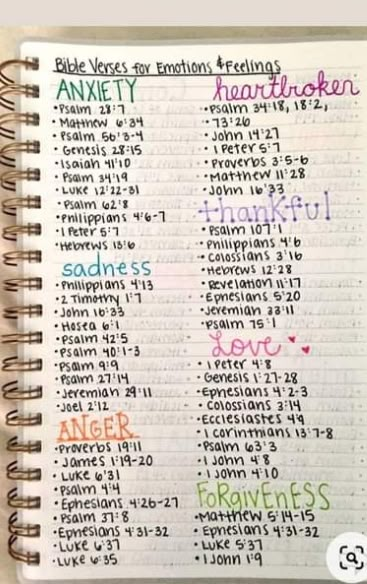 Bible Verses for Emotions & Feelings
ANXIETY
• Psalm 28:7
• Matthew 6:34
• Psalm 56:3-4
• Genesis 28:15
• Isaiah 41:10
• Psalm 34:19
• Luke 12:22-31
• Psalm 62:8
• Philippians 4:6-7
• 1 Peter 5:7
• Hebrews 13:6
sadness
• Philippians 4:13
• 2 Timothy 1:7
• John 16:33
• Hosea 6:1
• Psalm 42:5
• Psalm 40:1-3
• Psalm 9:9
• Psalm 27:14
• Jeremiah 29:11
• Joel 2:12
ANGER
• Proverbs 19:11
• James 1:19-20
• Luke 6:31
• Psalm 4:4
• Ephesians 4:26-27
• Psalm 37:8
• Ephesians 4:31-32
• Luke 6:37
• Luke 6:35
heartbroken
• Psalm 34:18, 18:2,
• 73:26
• John 14:27
• 1 Peter 5:7
• Proverbs 3:5-6
• Matthew 11:28
• John 16:33
thankful
• Psalm 107:1
• Philippians 4:6
• Colossians 3:16
• Hebrews 12:28
• Revelation 11:17
• Ephesians 5:20
• Jeremiah 33:11
• Psalm 75:1
Love
• 1 Peter 4:8
• Genesis 1:27-28
• Ephesians 4:2-3
• Colossians 3:14
• Ecclesiastes 4:9
• 1 Corinthians 13:7-8
• Psalm 63:3
• 1 John 4:8
• 1 John 4:10
FoRgivEnESS
• Matthew 5:14-15
• Ephesians 4:31-32
• Luke 5:37
• 1 John 1:9